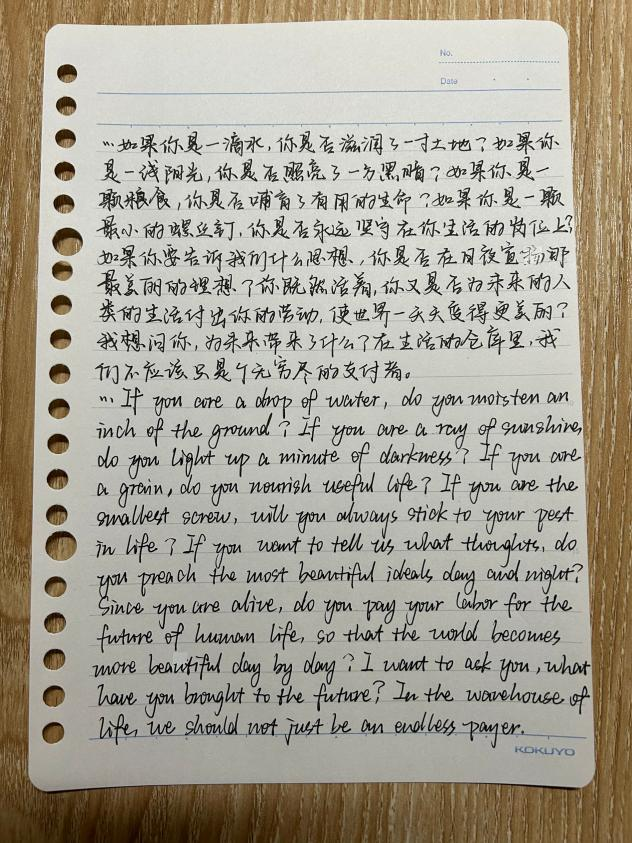 No.
Date
…如果你是一滴水，你是否滋润了一寸土地？如果你
是一线阳光，你是否照亮了一分黑暗？如果你是一
颗粮食，你是否哺育了有用的生命？如果你是一颗
最小的螺丝钉，你是否永远坚守在你生活的岗位上？
如果你要告诉我们什么思想，你是否在日夜宣扬那
最美丽的理想？你既然活着，你又是否为未来的人
类的生活付出你的劳动，使世界一天天变得更美丽？
我想问你，为未来带来了什么？在生活的仓库里，我
们不应该只是个无穷尽的支付者。
… If you are a drop of water, do you moisten an
inch of the ground? If you are a ray of sunshine,
do you light up a minute of darkness? If you are
a grain, do you nourish useful life? If you are the
smallest screw, will you always stick to your post
in life? If you want to tell us what thoughts, do
you preach the most beautiful ideals day and night?
Since you are alive, do you pay your labor for the
future of human life, so that the world becomes
more beautiful day by day? I want to ask you, what
have you brought to the future? In the warehouse of
life, we should not just be an endless payer.
KOKUYO